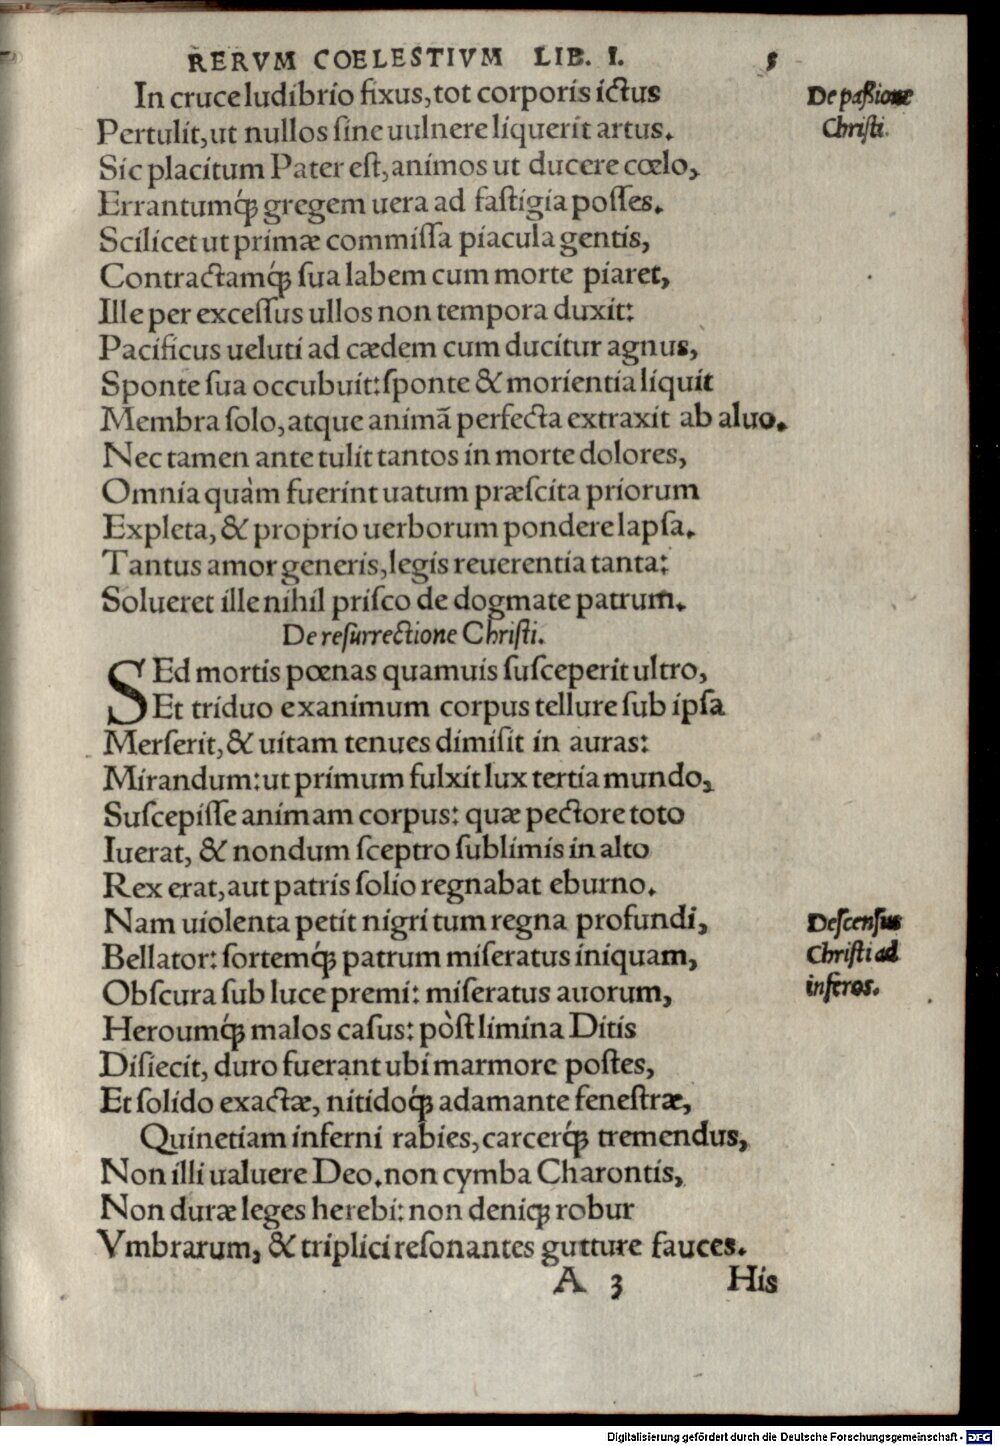 RERVM COELESTIVM LIB. I. 5
In cruce ludibrio fixus, tot corporis ictus
De paßione
Pertulit, ut nullos ſine uulnere liquerit artus.
Chriſti.
Sic placitum Pater eſt, animos ut ducere cœlo,
Errantumq́ꝫ gregem uera ad faſtigia poſſes.
Scilicet ut primæ commiſſa piacula gentis,
Contractamq́ꝫ ſua labem cum morte piaret,
Ille per exceſſus ullos non tempora duxit:
Pacificus ueluti ad cædem cum ducitur agnus,
Sponte ſua occubuit: ſponte & morientia liquit
Membra ſolo, atque animā perfecta extraxit ab aluo.
Nec tamen ante tulit tantos in morte dolores,
Omnia quàm fuerint uatum præſcita priorum
Expleta, & proprio uerborum pondere lapſa.
Tantus amor generis, legis reuerentia tanta:
Solueret ille nihil priſco de dogmate patrum.
De reſurrectione Chriſti.
SEd mortis pœnas quamuis ſuſceperit ultro,
Et triduo exanimum corpus tellure ſub ipſa
Merſerit, & uitam tenues dimiſit in auras:
Mirandum: ut primum fulxit lux tertia mundo,
Suſcepiſſe animam corpus: quæ pectore toto
Iuerat, & nondum ſceptro ſublimis in alto
Rex erat, aut patris ſolio regnabat eburno.
Nam uiolenta petit nigri tum regna profundi,
Deſcenſus
Bellator: ſortemq́ꝫ patrum miſeratus iniquam,
Chriſti ad
Obſcura ſub luce premi: miſeratus auorum,
inferos.
Heroumq́ꝫ malos caſus: pòſt limina Ditis
Diſiecit, duro fuerant ubi marmore poſtes,
Et ſolido exactæ, nitidoq́ꝫ adamante feneſtræ,
Quinetiam inferni rabies, carcerq́ꝫ tremendus,
Non illi ualuere Deo. non cymba Charontis,
Non duræ leges herebi: non deniqꝫ robur
Vmbrarum, & triplici reſonantes gutture fauces.
A 3 His
Digitalisierung gefördert durch die Deutsche Forschungsgemeinschaft - DFG